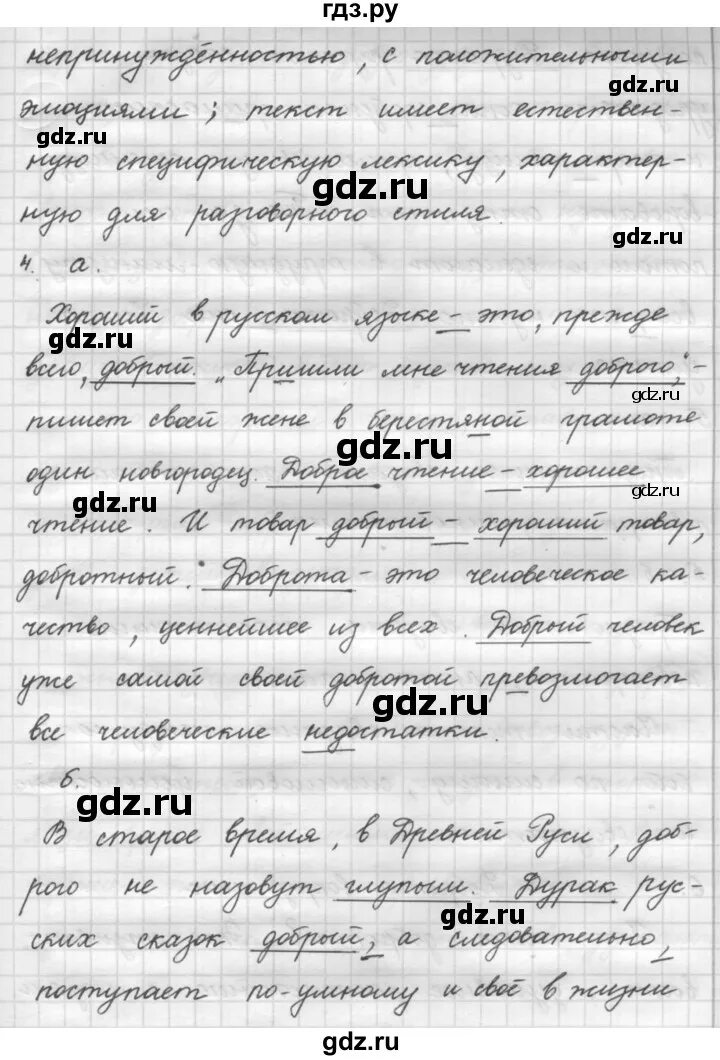 гдз.ру
непринуждённостью, с положительными
gdz.ru
эмоциями; текст имеет естествен-
gdz.ru
ную специфическую лексику, характер-
gdz.ru
ную для разговорного стиля.
gdz.ru
4. а.
Хороший в русском языке - это, прежде
gdz.ru
всего, добрый. „Пришли мне чтения доброго," -
gdz.ru
пишет своей жене в берестяной грамоте
gdz.ru
один новгородец. Доброе чтение - хорошее
чтение. И товар добрый - хороший товар,
добротный." Доброта - это человеческое ка-
чество, ценнейшее из всех. Добрый человек
уже самой своей добротой превозмогает
gdz.ru
все человеческие недостатки.
б.
gdz.ru
В старое время, в Древней Руси, доб-
рого не назовут глупым. Дурак рус-
gdz.ru
ских сказок добрый, а следовательно,
поступает по-умному и своё в жизни
gdz.ru